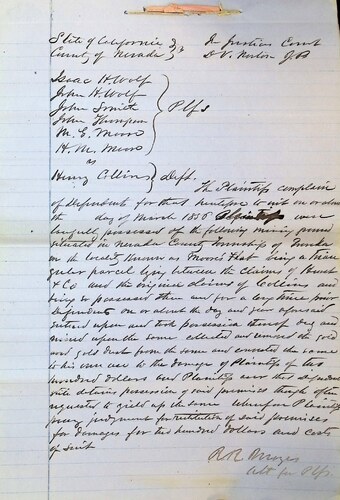 State of California } ss In Justices Court
County of Nevada D. V. Norton J.P.
Isaac H. Wolf
John H. Wolf
John Smith
John Thompson } Plfs
M. G. Moore
H. M. Moore
vs
Henry Collins } Deft.
The Plaintiffs complain
of Defendant for that heretofore to wit on or about
the day of March 1856 Plaintiffs were
lawfully possessed of the following mining ground
situated in Nevada County Township of Nevada
in the locality known as Moore's Flat being a trian
gular parcel lying between the Claims of
& Co and the original claims of Collins and
being so possessed then and for a long time prior
Defendants on or about the day and year aforesaid
entered upon and took possession thereof dug and
mined upon the same collected and removed the gold
and gold dust from the same and converted the same
to his own use to the damage of Plaintiffs of two
hundred dollars and Plaintiffs aver that Defendant
detains possession of said premises though often
requested to yield up the same wherefore Plaintiffs
pray judgment for restitution of said premises
for damages for two hundred dollars and costs
of suit
Att for Plfs.